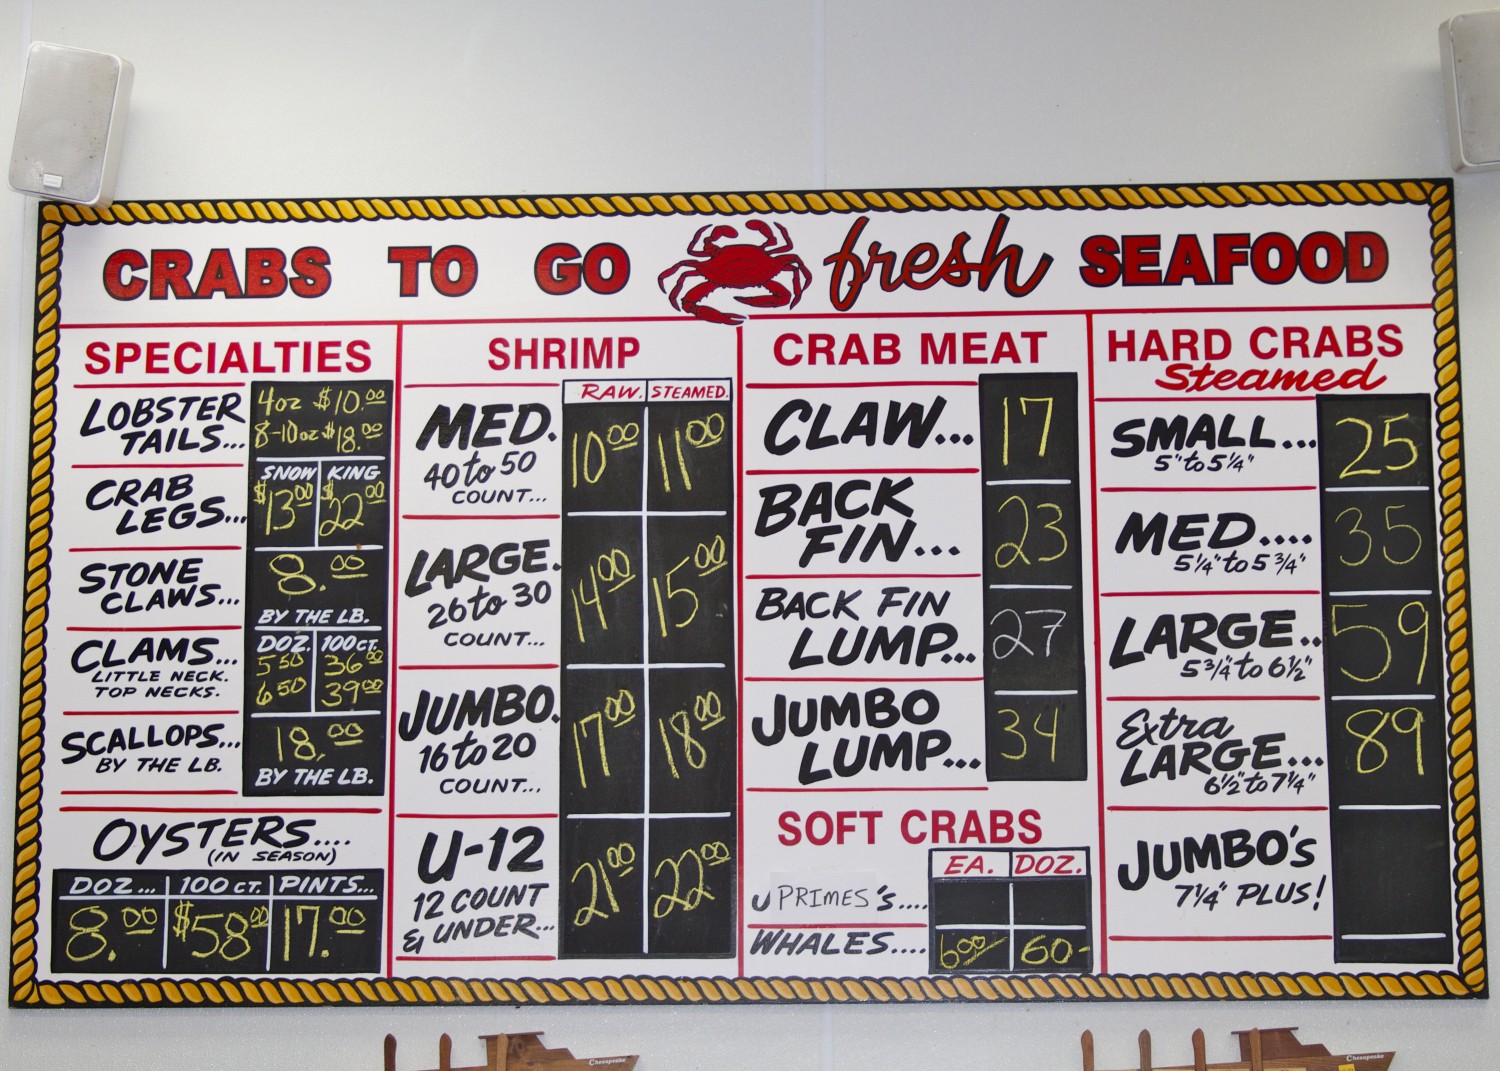 CRABS TO GO fresh SEAFOOD
SPECIALTIES
LOBSTER TAILS...
4oz $10.00
8-10oz $18.00
CRAB LEGS...
SNOW KING
$13.00 $22.00
STONE CLAWS...
8.00
BY THE LB.
CLAMS...
DOZ. 100 CT.
LITTLE NECK. 5.50 36.00
TOP NECKS. 6.50 39.00
SCALLOPS...
BY THE LB.
18.00
BY THE LB.
OYSTERS....
(IN SEASON)
DOZ... 100 CT. PINTS...
8.00 $58.00 17.00
SHRIMP
RAW. STEAMED.
MED.
40 to 50
COUNT...
10.00 11.00
LARGE.
26 to 30
COUNT...
14.00 15.00
JUMBO.
16 to 20
COUNT...
17.00 18.00
U-12
12 COUNT
& UNDER...
21.00 22.00
CRAB MEAT
CLAW... 17
BACK FIN... 23
BACK FIN LUMP... 27
JUMBO LUMP... 34
SOFT CRABS
EA. DOZ.
PRIMES's....
WHALES.... 6.00 60-
HARD CRABS
Steamed
SMALL... 25
5" to 5¼"
MED.... 35
5¼" to 5¾"
LARGE.. 59
5¾" to 6½"
Extra LARGE... 89
6½" to 7¼"
JUMBO's
7¼" PLUS!
Chesapeake
Chesapeake